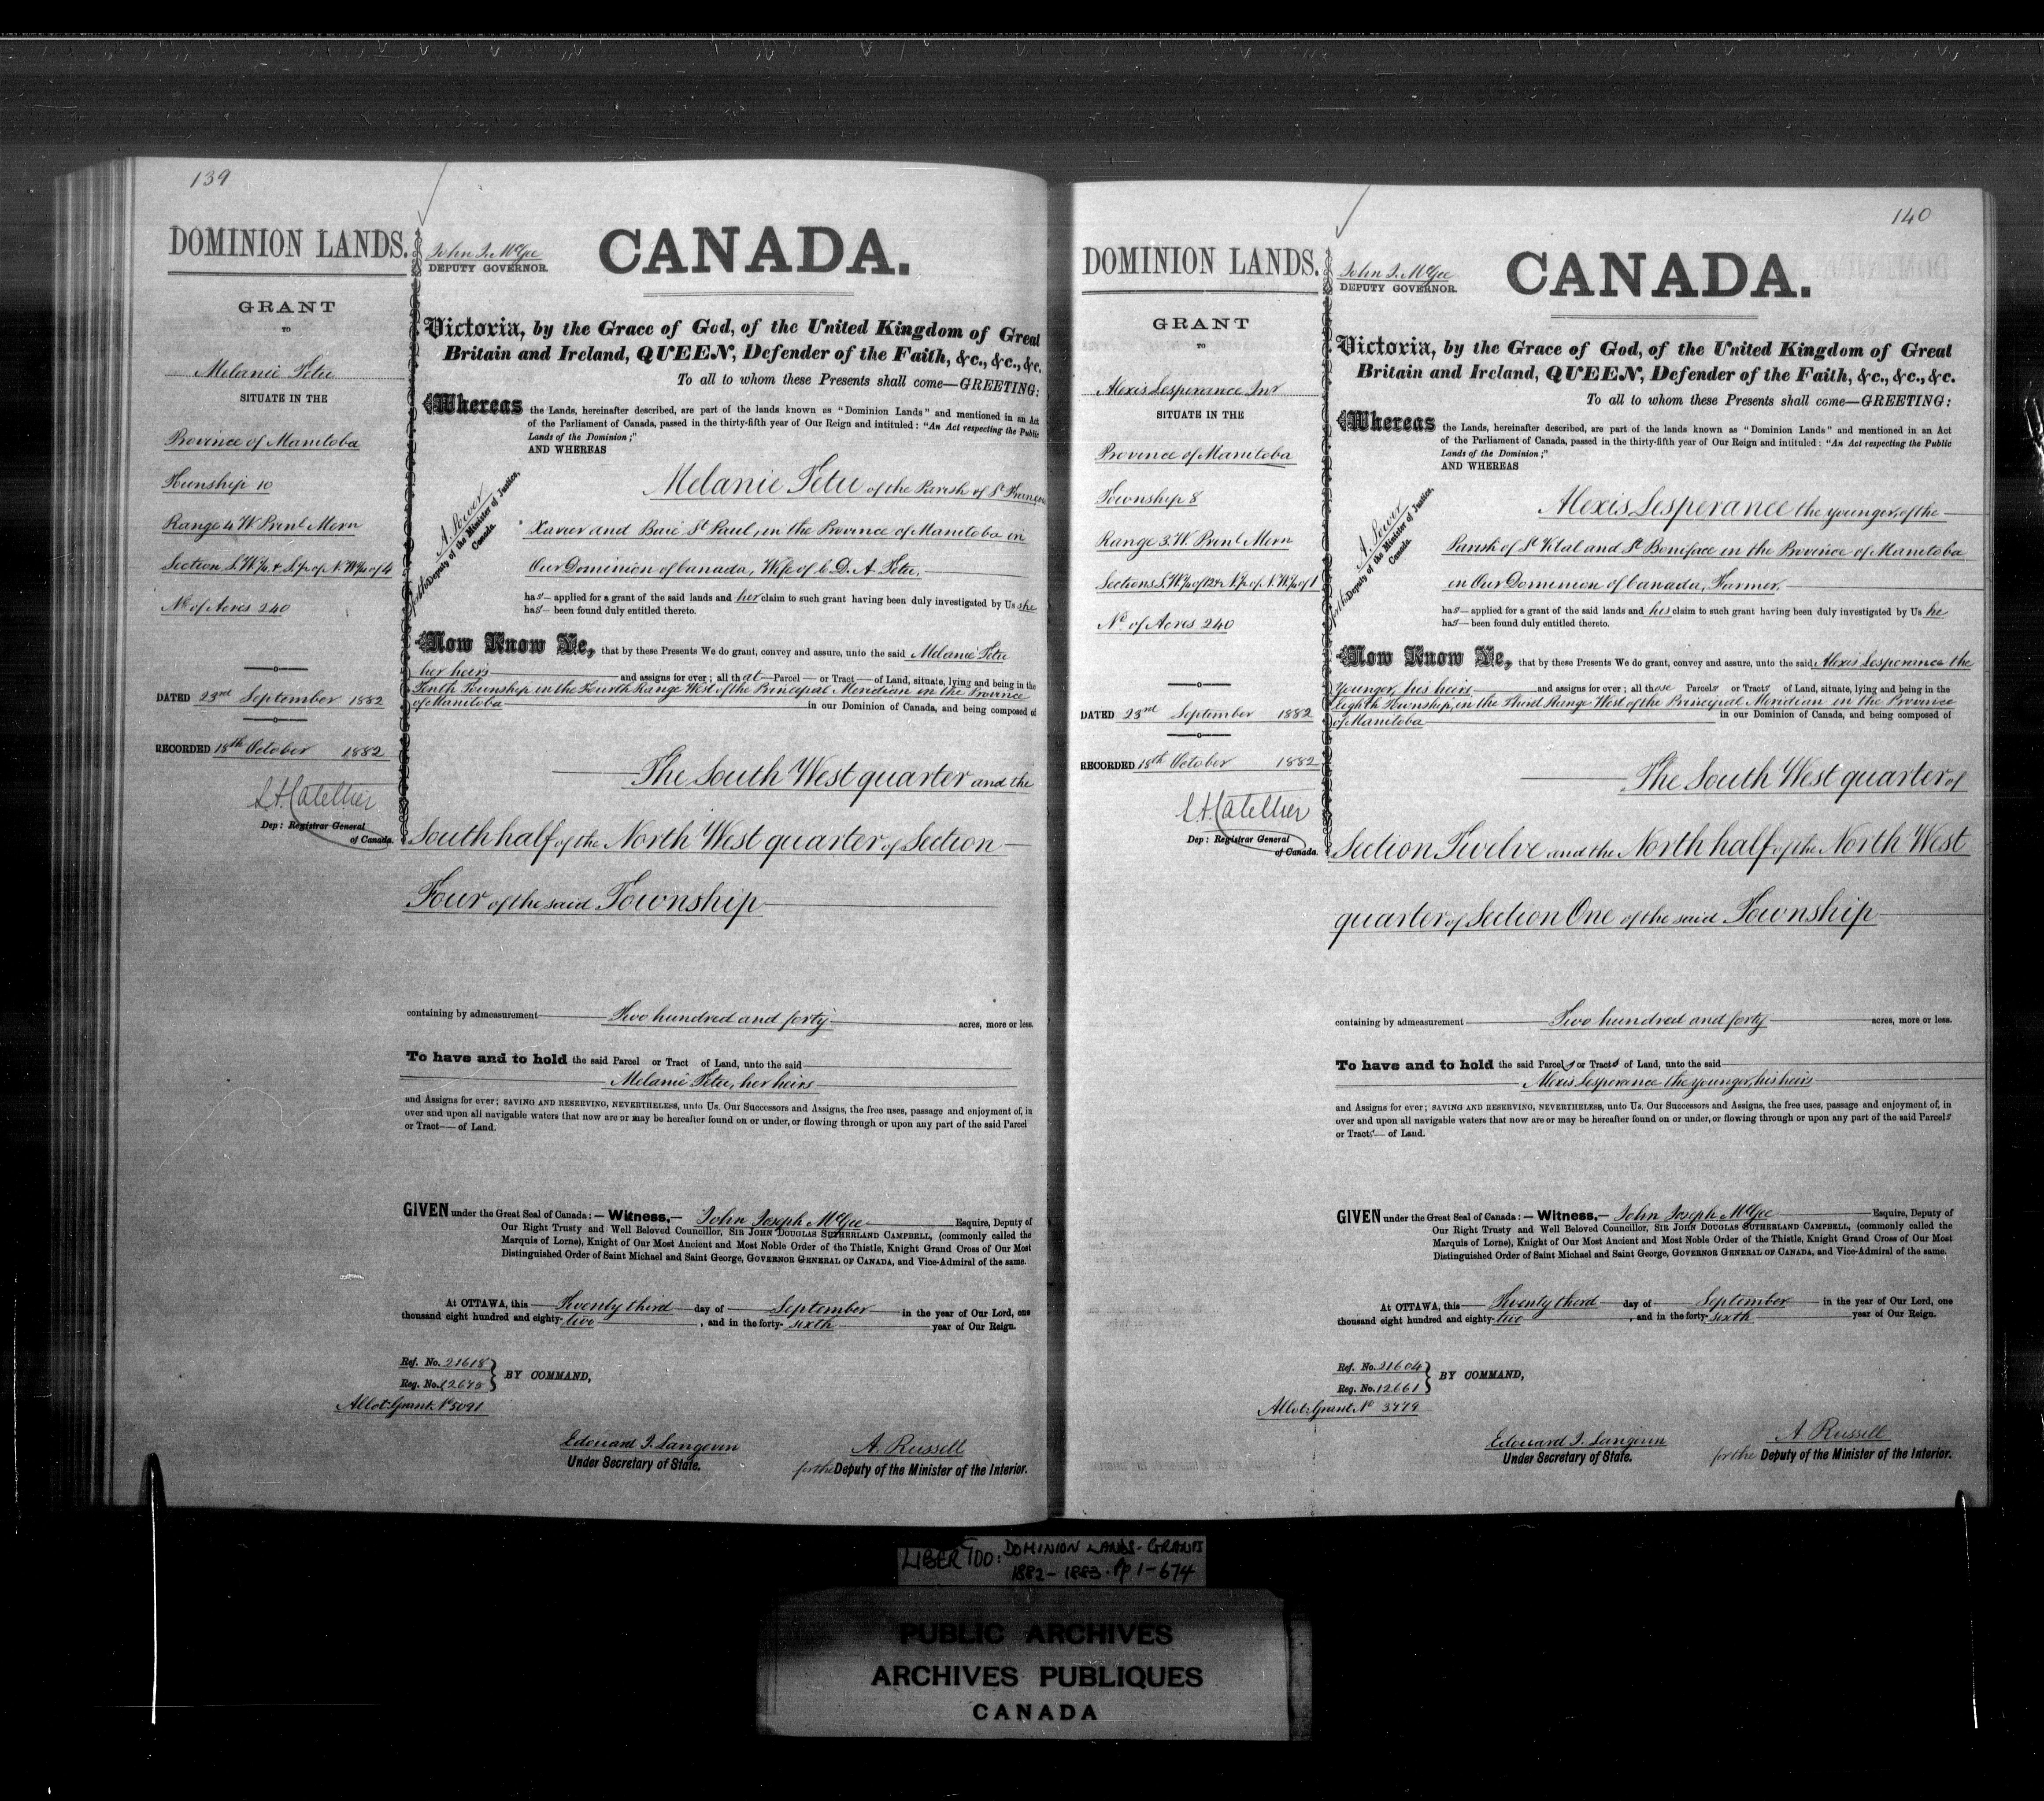 139
DOMINION LANDS.
GRANT
TO
Melanie Fetu
SITUATE IN THE
Province of Manitoba
Township 10
Range 4 W Prinl Mern
Section S.W¼ & S½ of N.W¼ of 4
No of Acres 240
DATED 23rd September 1882
RECORDED 18th October 1882
Dep: Registrar General
of Canada.
John J. McGee
DEPUTY GOVERNOR.
CANADA.
Victoria, by the Grace of God, of the United Kingdom of Great
Britain and Ireland, QUEEN, Defender of the Faith, &c., &c., &c.
To all to whom these Presents shall come—GREETING:
Whereas the Lands, hereinafter described, are part of the lands known as "Dominion Lands" and mentioned in an Act
of the Parliament of Canada, passed in the thirty-fifth year of Our Reign and intituled: "An Act respecting the Public
Lands of the Dominion;"
AND WHEREAS
A. Power
for the Deputy of the Minister of Justice,
Canada.
Melanie Fetu of the Parish of St Francois
Xavier and Baie St Paul, in the Province of Manitoba in
Our Dominion of Canada, Wife of C. D. A. Fetu,
has applied for a grant of the said lands and her claim to such grant having been duly investigated by Us she
has been found duly entitled thereto.
Now Know Ye, that by these Presents We do grant, convey and assure, unto the said Melanie Fetu
her heirs and assigns for ever; all that Parcel or Tract of Land, situate, lying and being in the
Tenth Township in the Fourth Range West of the Principal Meridian in the Province
of Manitoba in our Dominion of Canada, and being composed of
The South West quarter and the
South half of the North West quarter of Section
Four of the said Township
containing by admeasurement Two hundred and forty acres, more or less.
To have and to hold the said Parcel or Tract of Land, unto the said
Melanie Fetu, her heirs
and Assigns for ever; SAVING AND RESERVING, NEVERTHELESS, unto Us. Our Successors and Assigns, the free uses, passage and enjoyment of, in
over and upon all navigable waters that now are or may be hereafter found on or under, or flowing through or upon any part of the said Parcel
or Tract of Land.
GIVEN under the Great Seal of Canada:—Witness,—John Joseph McGee Esquire, Deputy of
Our Right Trusty and Well Beloved Councillor, SIR JOHN DOUGLAS SUTHERLAND CAMPBELL, (commonly called the
Marquis of Lorne), Knight of Our Most Ancient and Most Noble Order of the Thistle, Knight Grand Cross of Our Most
Distinguished Order of Saint Michael and Saint George, GOVERNOR GENERAL OF CANADA, and Vice-Admiral of the same.
At OTTAWA, this Twenty third day of September in the year of Our Lord, one
thousand eight hundred and eighty-two, and in the forty-sixth year of Our Reign.
Ref. No. 21618
Reg. No. 12675
BY COMMAND,
Allot: Grant No 5091
Edouard J. Langevin
Under Secretary of State.
A. Russell
for the Deputy of the Minister of the Interior.
140
DOMINION LANDS.
GRANT
TO
Alexis Lesperance Jnr
SITUATE IN THE
Province of Manitoba
Township 8
Range 3. W. Prinl Mern
Sections S.W¼ of 12 & N½ of N.W¼ of 1
No of Acres 240
DATED 23rd September 1882
RECORDED 18th October 1882
Dep: Registrar General
of Canada.
John J. McGee
DEPUTY GOVERNOR.
CANADA.
Victoria, by the Grace of God, of the United Kingdom of Great
Britain and Ireland, QUEEN, Defender of the Faith, &c., &c., &c.
To all to whom these Presents shall come—GREETING:
Whereas the Lands, hereinafter described, are part of the lands known as "Dominion Lands" and mentioned in an Act
of the Parliament of Canada, passed in the thirty-fifth year of Our Reign and intituled: "An Act respecting the Public
Lands of the Dominion;"
AND WHEREAS
A. Power
for the Deputy of the Minister of Justice,
Canada.
Alexis Lesperance the younger, of the
Parish of St Vital and St Boniface in the Province of Manitoba
in Our Dominion of Canada, Farmer,
has applied for a grant of the said lands and his claim to such grant having been duly investigated by Us he
has been found duly entitled thereto.
Now Know Ye, that by these Presents We do grant, convey and assure, unto the said Alexis Lesperance the
younger, his heirs and assigns for ever; all those Parcels or Tracts of Land, situate, lying and being in the
Eighth Township, in the Third Range West of the Principal Meridian in the Province
of Manitoba in our Dominion of Canada, and being composed of
The South West quarter of
Section Twelve and the North half of the North West
quarter of Section One of the said Township
containing by admeasurement Two hundred and forty acres, more or less.
To have and to hold the said Parcels or Tracts of Land, unto the said
Alexis Lesperance the younger, his heirs
and Assigns for ever; SAVING AND RESERVING, NEVERTHELESS, unto Us. Our Successors and Assigns, the free uses, passage and enjoyment of, in
over and upon all navigable waters that now are or may be hereafter found on or under, or flowing through or upon any part of the said Parcels
or Tracts of Land.
GIVEN under the Great Seal of Canada:—Witness,—John Joseph McGee Esquire, Deputy of
Our Right Trusty and Well Beloved Councillor, SIR JOHN DOUGLAS SUTHERLAND CAMPBELL, (commonly called the
Marquis of Lorne), Knight of Our Most Ancient and Most Noble Order of the Thistle, Knight Grand Cross of Our Most
Distinguished Order of Saint Michael and Saint George, GOVERNOR GENERAL OF CANADA, and Vice-Admiral of the same.
At OTTAWA, this Twenty third day of September in the year of Our Lord, one
thousand eight hundred and eighty-two, and in the forty-sixth year of Our Reign.
Ref. No. 21604
Reg. No. 12661
BY COMMAND,
Allot: Grant No 3779
Edouard J. Langevin
Under Secretary of State.
A. Russell
for the Deputy of the Minister of the Interior.
LIBER 100: DOMINION LANDS-GRANTS
1882-1883. Pp 1-674
PUBLIC ARCHIVES
ARCHIVES PUBLIQUES
CANADA